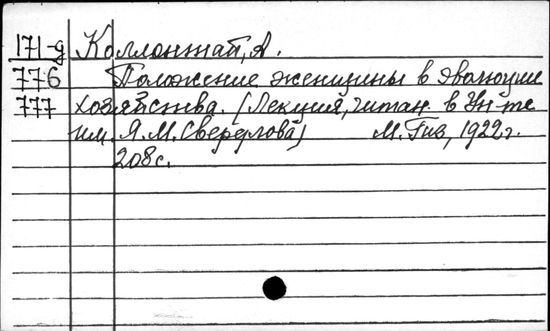 171-д Коллонтай, А.
776 Положение женщины в эволюции
777 хозяйства. (Лекция, читан. в Ун-те
им. Я.М. Свердлова) М. Гиз, 1922г.
208с.